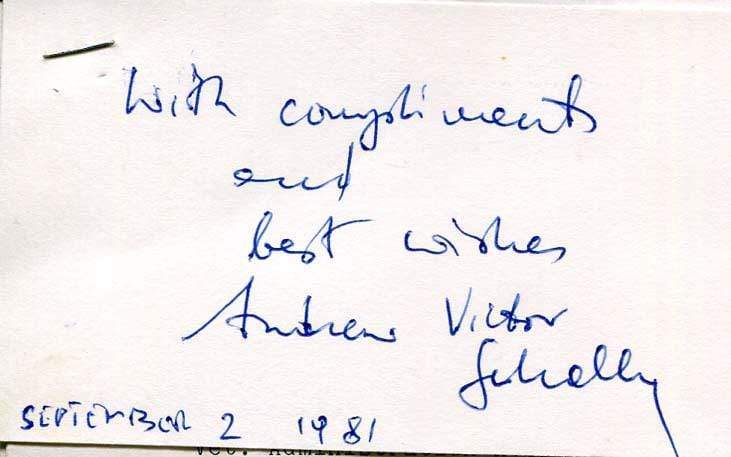 With compliments
and
best wishes
Andrew Victor
Schally
SEPTEMBER 2 1981